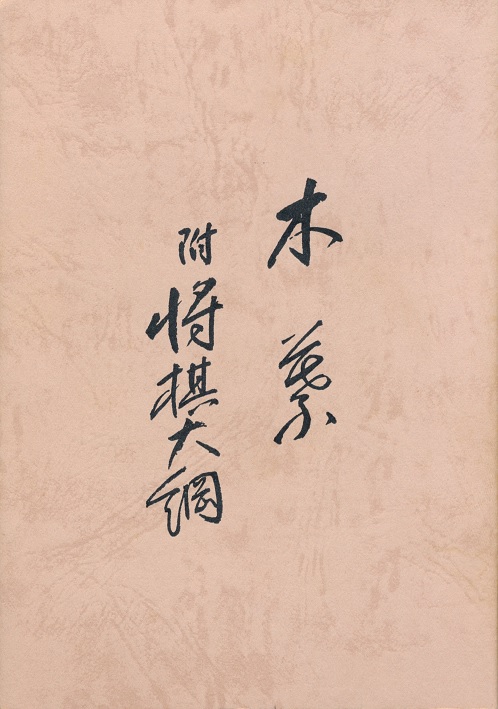 木葉
附
将棋大綱